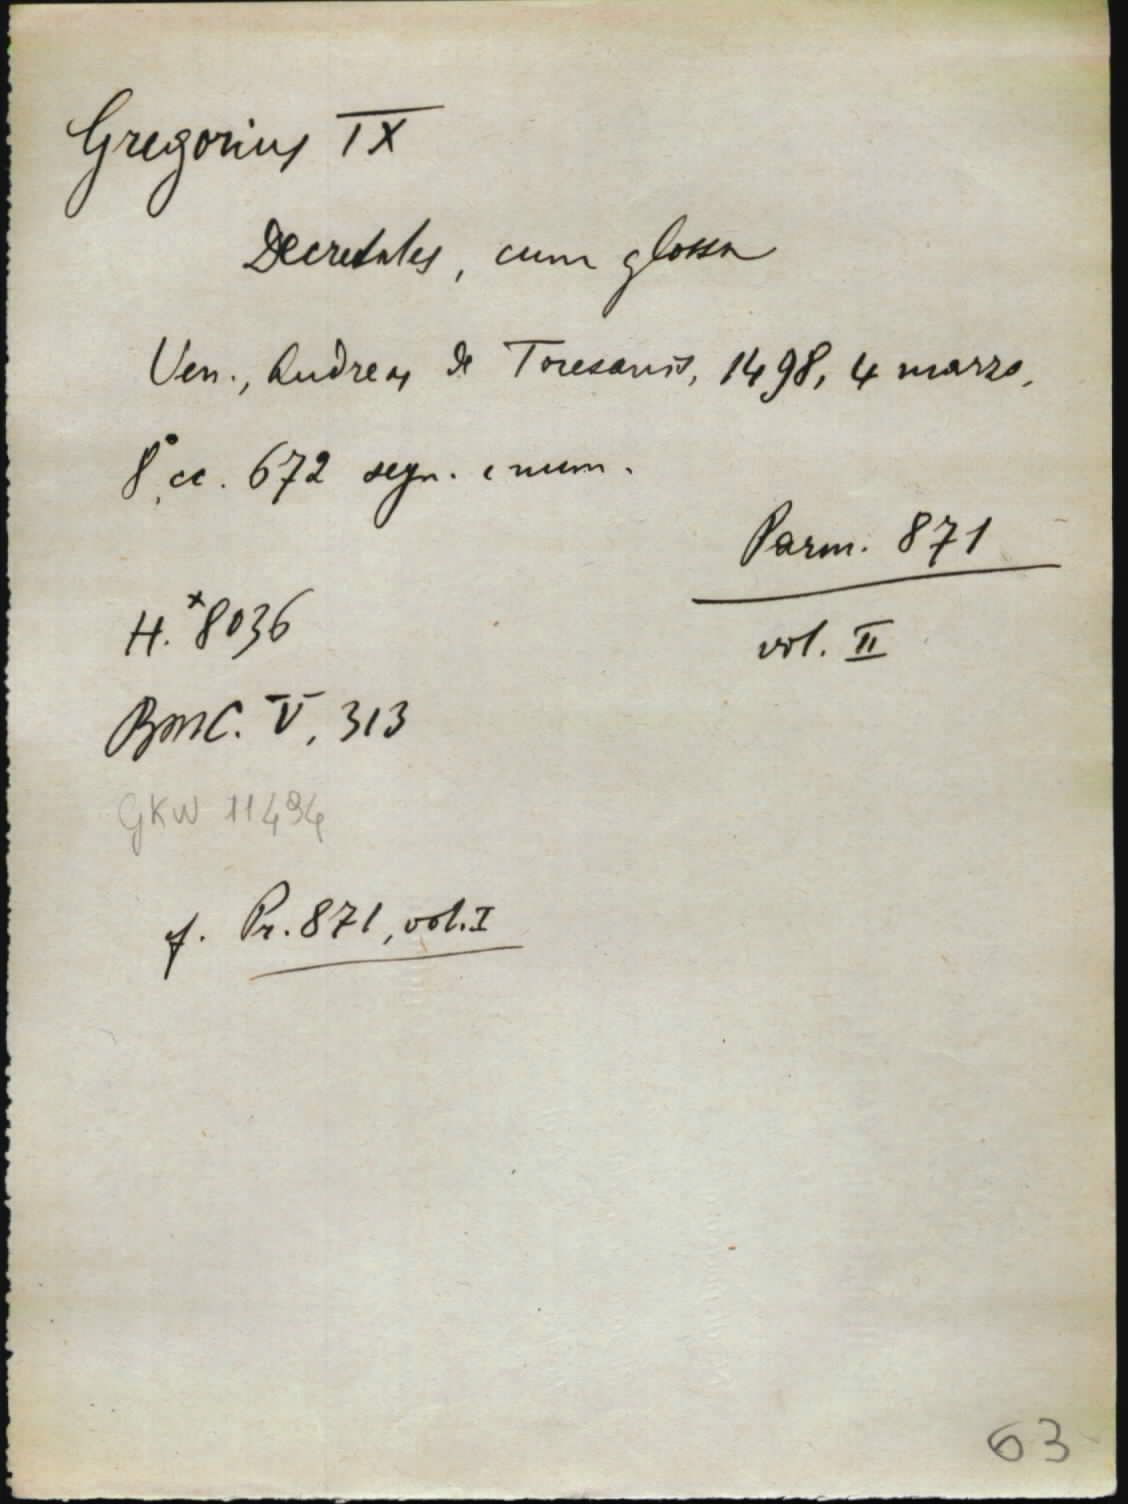 Gregorius IX
Decretales, cum glossa
Ven., Andreas de Toresanis, 1498, 4 marzo,
8°, cc. 672 segn. e num.
Parm. 871
vol. II
H. *8036
BMC. V, 313
GKW 11494
cf. Pr. 871, vol. I
63